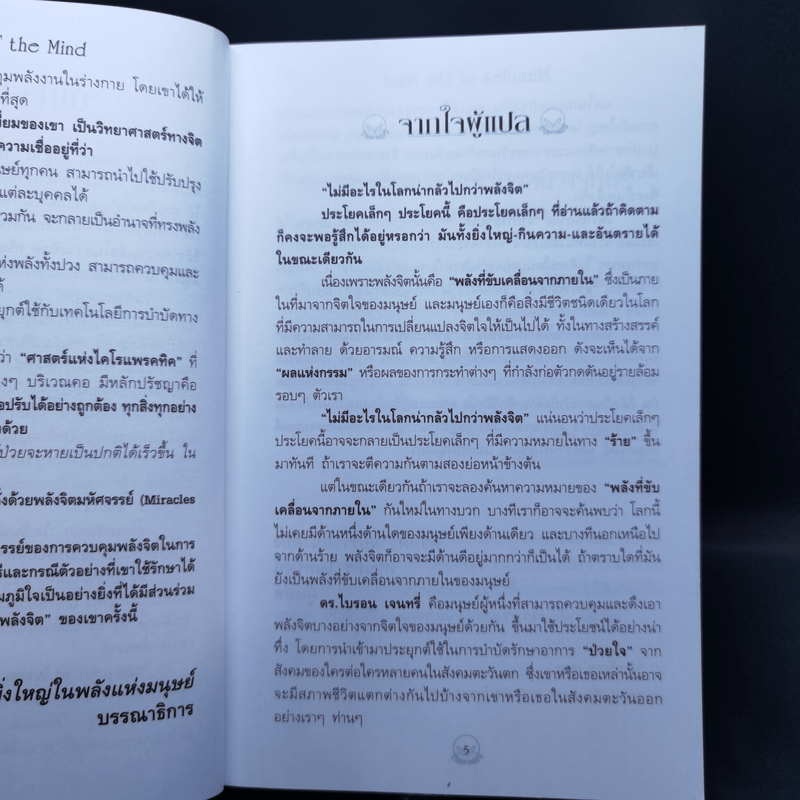 f the Mind
คุมพลังงานในร่างกาย โดยเขาได้ให้
ที่สุด
ยมของเขา เป็นวิทยาศาสตร์ทางจิต
ความเชื่ออยู่ที่ว่า
นุษย์ทุกคน สามารถนำไปใช้ปรับปรุง
แต่ละบุคคลได้
วมกัน จะกลายเป็นอำนาจที่ทรงพลัง
ห่งพลังทั้งปวง สามารถควบคุมและ
ด้
ยุกต์ใช้กับเทคโนโลยีการบำบัดทาง
ว่า “ศาสตร์แห่งไคโรแพรคทิค” ที่
างๆ บริเวณคอ มีหลักปรัชญาคือ
อปรับได้อย่างถูกต้อง ทุกสิ่งทุกอย่าง
งด้วย
ป่วยจะหายเป็นปกติได้เร็วขึ้น ใน
ั้งด้วยพลังจิตมหัศจรรย์ (Miracles
จรรย์ของการควบคุมพลังจิตในการ
ธีและกรณีตัวอย่างที่เขาใช้รักษาได้
มภูมิใจเป็นอย่างยิ่งที่ได้มีส่วนร่วม
พลังจิต” ของเขาครั้งนี้
ิ่งใหญ่ในพลังแห่งมนุษย์
บรรณาธิการ
จากใจผู้แปล
“ไม่มีอะไรในโลกน่ากลัวไปกว่าพลังจิต”
ประโยคเล็กๆ ประโยคนี้ คือประโยคเล็กๆ ที่อ่านแล้วถ้าคิดตาม
ก็คงจะพอรู้สึกได้อยู่หรอกว่า มันทั้งยิ่งใหญ่-กินความ-และอันตรายได้
ในขณะเดียวกัน
เนื่องเพราะพลังจิตนั้นคือ “พลังที่ขับเคลื่อนจากภายใน” ซึ่งเป็นภาย
ในที่มาจากจิตใจของมนุษย์ และมนุษย์เองก็คือสิ่งมีชีวิตชนิดเดียวในโลก
ที่มีความสามารถในการเปลี่ยนแปลงจิตใจให้เป็นไปได้ ทั้งในทางสร้างสรรค์
และทำลาย ด้วยอารมณ์ ความรู้สึก หรือการแสดงออก ดังจะเห็นได้จาก
“ผลแห่งกรรม” หรือผลของการกระทำต่างๆ ที่กำลังก่อตัวกดดันอยู่รายล้อม
รอบๆ ตัวเรา
“ไม่มีอะไรในโลกน่ากลัวไปกว่าพลังจิต” แน่นอนว่าประโยคเล็กๆ
ประโยคนี้อาจจะกลายเป็นประโยคเล็กๆ ที่มีความหมายในทาง “ร้าย” ขึ้น
มาทันที ถ้าเราจะตีความกันตามสองย่อหน้าข้างต้น
แต่ในขณะเดียวกันถ้าเราจะลองค้นหาความหมายของ “พลังที่ขับ
เคลื่อนจากภายใน” กันใหม่ในทางบวก บางทีเราก็อาจจะค้นพบว่า โลกนี้
ไม่เคยมีด้านหนึ่งด้านใดของมนุษย์เพียงด้านเดียว และบางทีนอกเหนือไป
จากด้านร้าย พลังจิตก็อาจจะมีด้านดีอยู่มากกว่าก็เป็นได้ ถ้าตราบใดที่มัน
ยังเป็นพลังที่ขับเคลื่อนจากภายในของมนุษย์
ดร.ไบรอน เจนทรี่ คือมนุษย์ผู้หนึ่งที่สามารถควบคุมและดึงเอา
พลังจิตบางอย่างจากจิตใจของมนุษย์ด้วยกัน ขึ้นมาใช้ประโยชน์ได้อย่างน่า
ทึ่ง โดยการนำเข้ามาประยุกต์ใช้ในการบำบัดรักษาอาการ “ป่วยใจ” จาก
สังคมของใครต่อใครหลายคนในสังคมตะวันตก ซึ่งเขาหรือเธอเหล่านั้นอาจ
จะมีสภาพชีวิตแตกต่างกันไปบ้างจากเขาหรือเธอในสังคมตะวันออก
อย่างเราๆ ท่านๆ
5